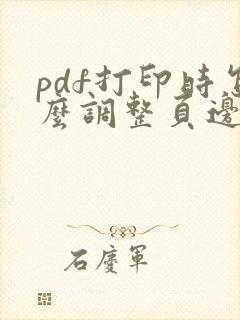 pdf打印時怎
麼調整頁邊
石慶軍